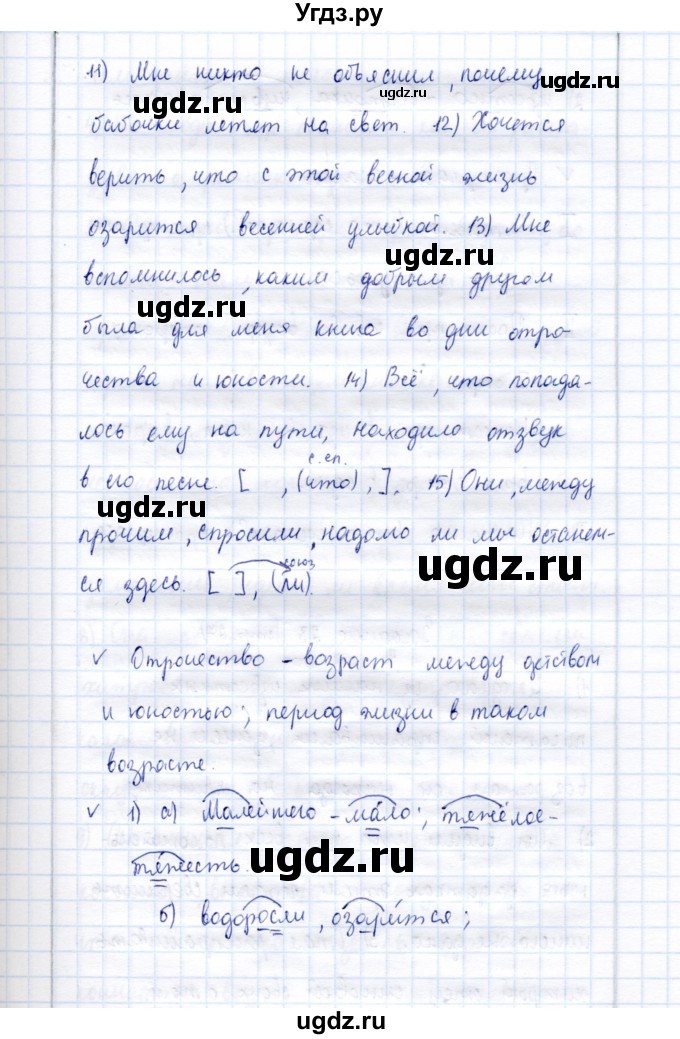 Угдз.ру
11) Мне никто не объяснил, почему
бабочки летят на свет. 12) Хочется
верить, что с этой весной жизнь
озарится весенней улыбкой. 13) Мне
вспомнилось, каким добрым другом
была для меня книга во дни отро-
чества и юности. 14) Всё, что попада-
лось ему на пути, находило отзвук
с.сл.
в его песне. [ , (что), ]. 15) Они, между
прочим, спросили, надолго ли мы останем-
союз
ся здесь. [ ], (ли).
v Отрочество - возраст между детством
и юностью; период жизни в таком
возрасте.
v 1) а) Малейшего - мáло; тяжёлое -
тя́жесть.
б) водоросли, озари́тся;
ugdz.ru
ugdz.ru
ugdz.ru
ugdz.ru
ugdz.ru
ugdz.ru
ugdz.ru
ugdz.ru
ugdz.ru